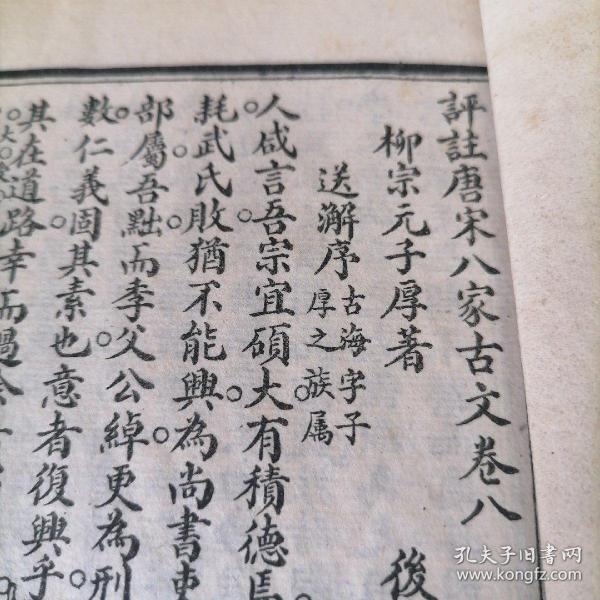 評註唐宋八家古文卷八
柳宗元子厚著 後
送澥序 古海字子
厚之族属
人咸言吾宗宜碩大有積德焉
耗武氏敗猶不能興為尚書吏
部屬吾黜而季父公綽更為刑
數仁義固其素也意者復興乎
其在道路幸而過
孔夫子旧书网
www.kongfz.com